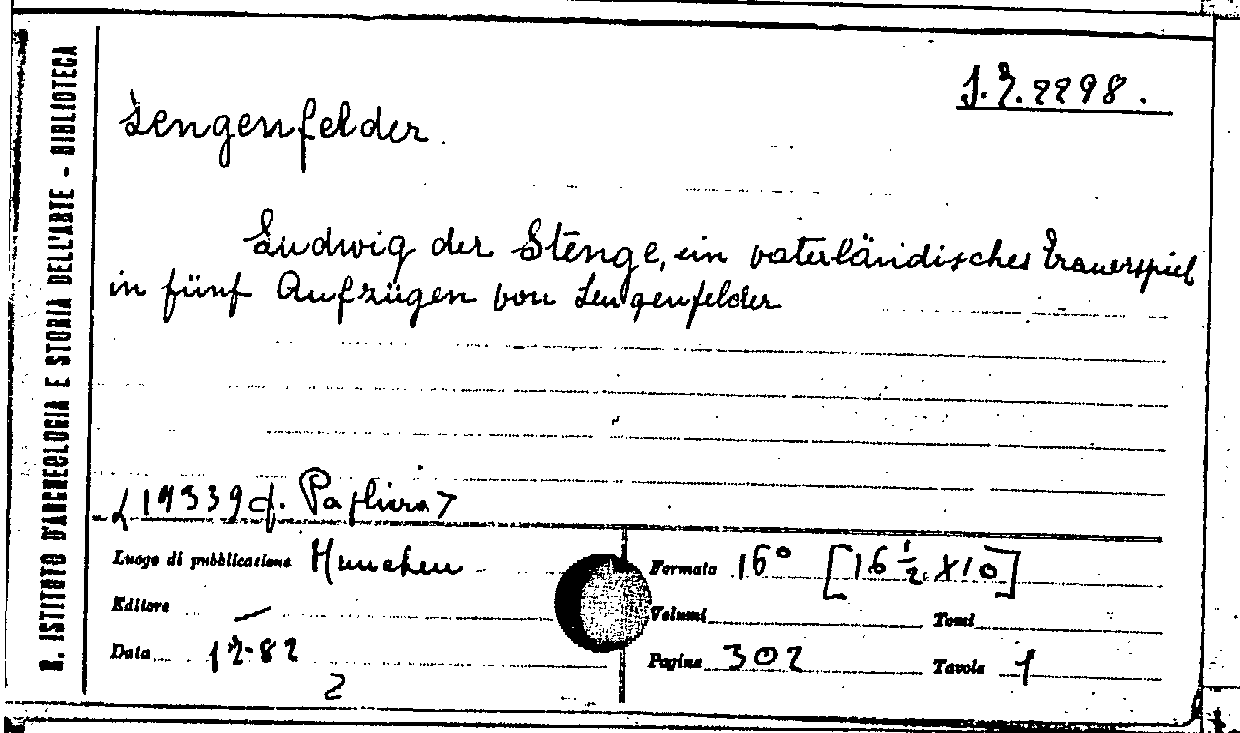 R. ISTITUTO D'ARCHEOLOGIA E STORIA DELL'ARTE - BIBLIOTECA
Lengenfelder.
Ludwig der Stenge, ein vaterländisches Trauerspiel
in fünf Aufzügen von Lengenfelder
Luogo di pubblicazione München
Formato 16° [16 ½ X 10]
Editore —
Volumi
Tomi
Data 1782
Pagine 302
Tavole 1
2